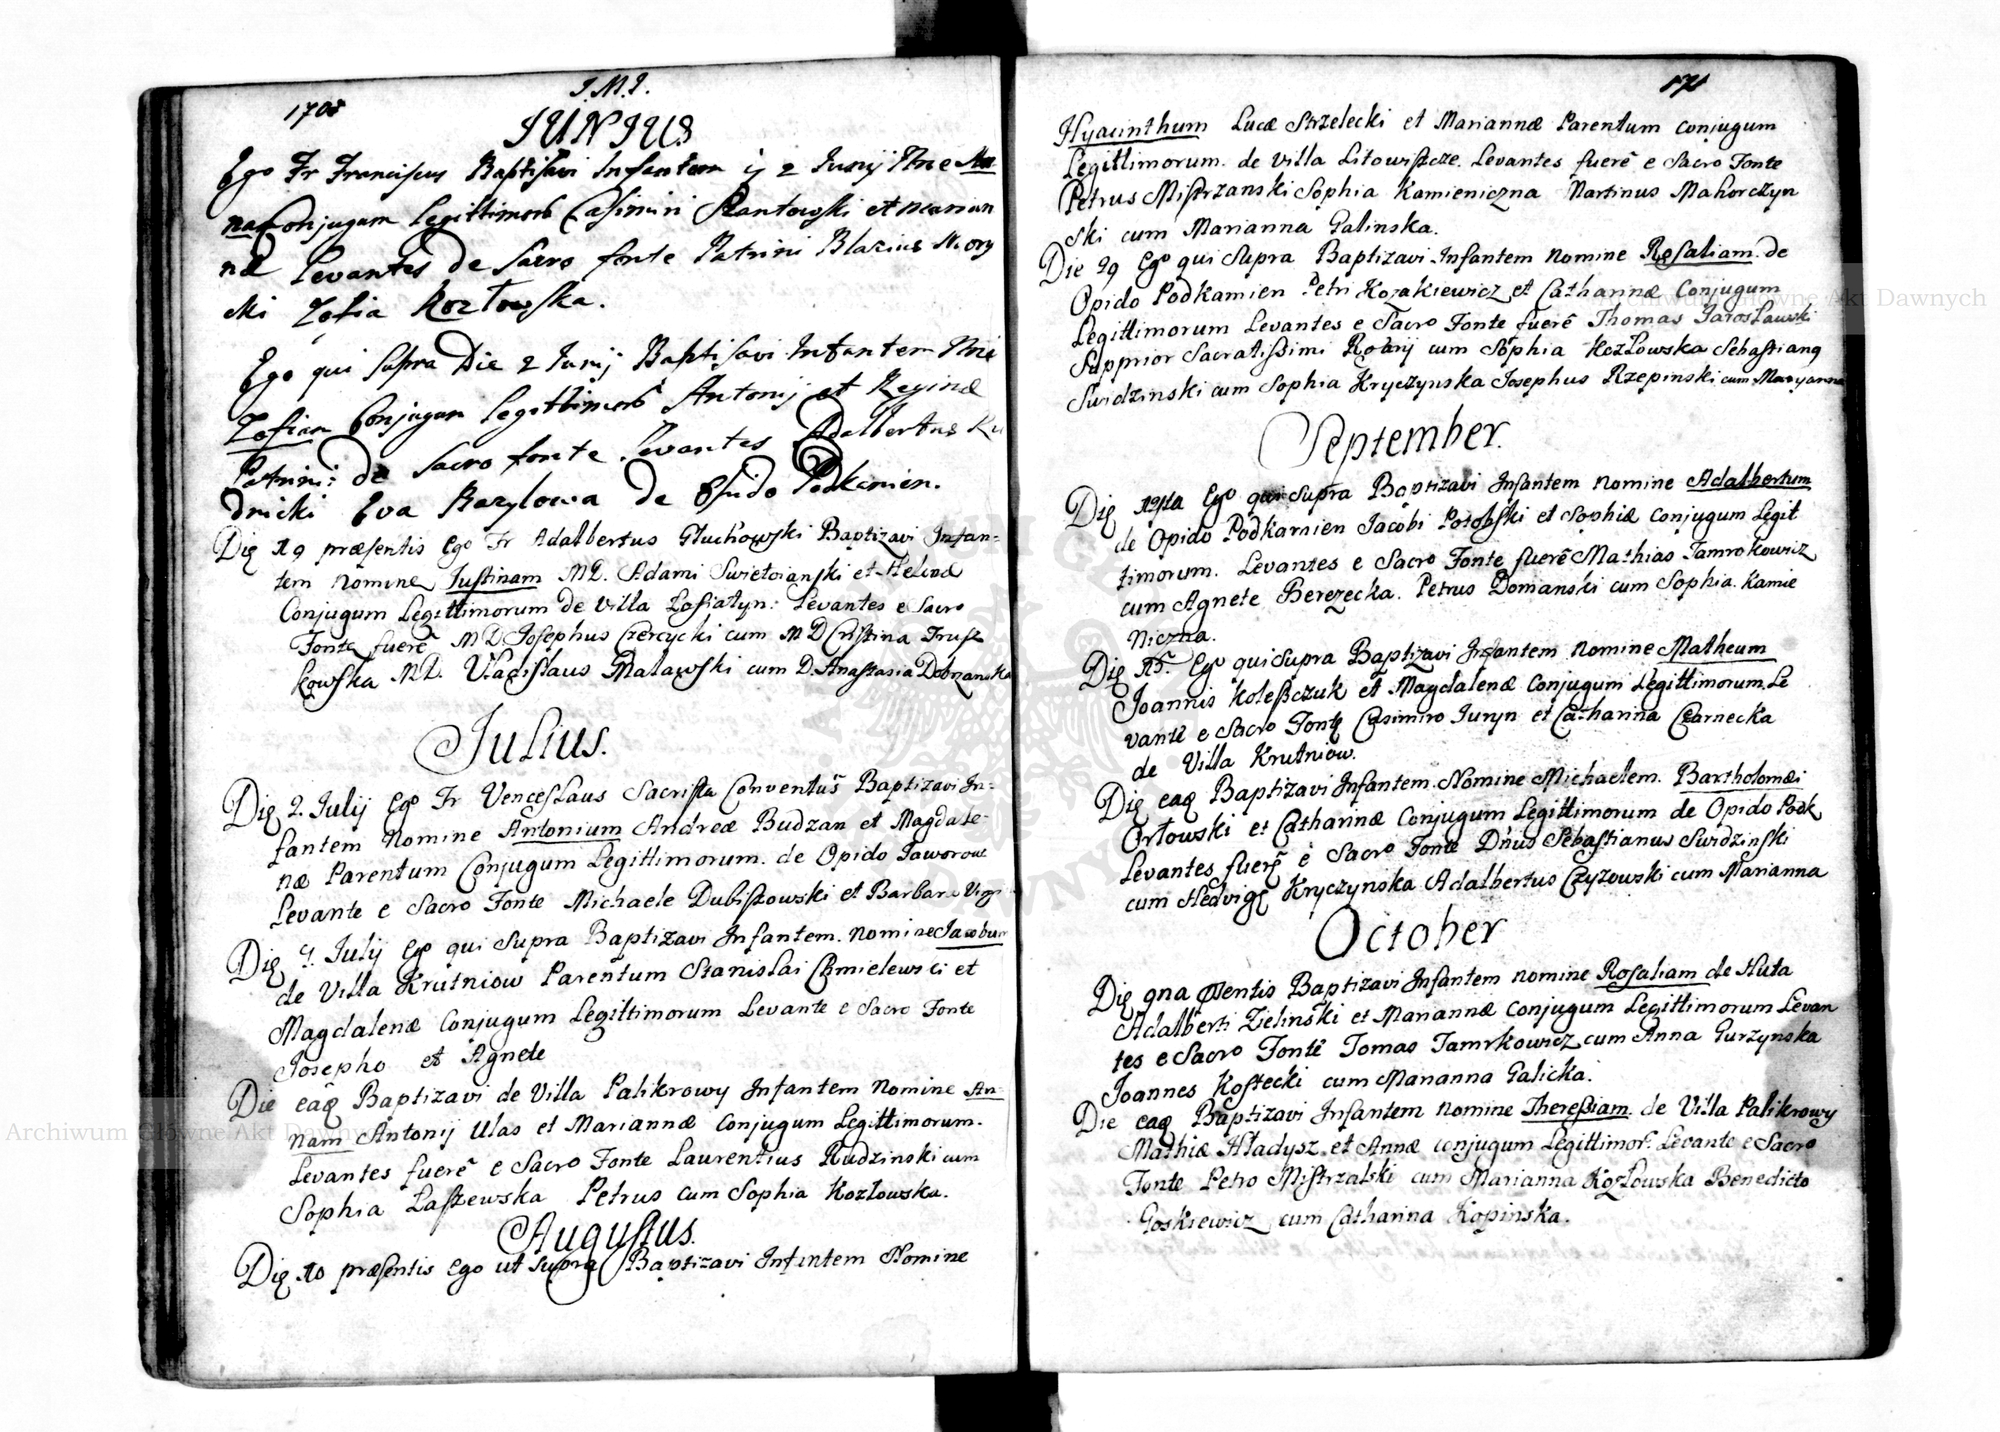 1708
J.M.J.
JUNIUS
Ego Fr Franciscus Baptisavi Infantem 2 Junij Nne An
nam Conjugum legittimorũ Casimiri et Marian
næ Levantes de Sacro fonte Patrini Blazius
cki Zofia Kozłowska.
Ego qui supra Die 2 Junij Baptisavi Infantem Nne
Zofiam Conjugum legittimorũ Antonij et Reginæ
Patrini: de Sacro fonte Levantes Adalbertus Ku
dricki Eva Bazylowa de Opido Podkamien.
Die 19 præsentis Ego Fr Adalbertus Głuchowski Baptizavi Infan=
tem Nomine Justinam MD. Adami Swietoianski et Helenæ
Conjugum Legittimorum de Villa : Levantes e Sacro
Fonte fuerẽ MD Josephus Czercycki cum MD Cristina Trusz
kowska MD. Vladislaus Malawski cum D. Anastasia Dobrzanska
Julius.
Die 2. Julij Ego Fr Venceslaus Sacrista Conventus Baptizavi In=
fantem Nomine Antonium Andreæ Budzan et Magdale-
næ Parentum Conjugum Legittimorum. de Opido Jaworow
Levante e Sacro Fonte Michaele Dubiszowski et Barbara Virgi
Die 4. Julij Ego qui Supra Baptizavi Infantem. Nomine Jacobum
de Villa Krutniow Parentum Stanislai Chmielewski et
Magdalenæ Conjugum Legittimorum Levante e Sacro Fonte
Josepho et Agnete
Die eaq Baptizavi de Villa Palikrowy Infantem Nomine An=
nam Antonij Ulas et Mariannæ Conjugum Legittimorum.
Levantes fuerẽ e Sacro Fonte Laurentius Rudzinski cum
Sophia Laszewska Petrus cum Sophia Kozłowska.
Augustus.
Die 10 præsentis Ego ut Supra Baptizavi Infantem Nomine
171
Hyacinthum Lucæ Strzelecki et Mariannæ Parentum Conjugum
Legittimorum. de Villa Litowiszcze. Levantes fuerẽ e Sacro Fonte
Petrus Mistrzanski Sophia Kamieniczna Martinus Mahorczyn
ski cum Marianna Galinska.
Die 29 Ego qui Supra Baptizavi Infantem Nomine Rosaliam de
Opido Podkamien Petri Kozakiewicz et Catharinæ Conjugum
Legittimorum Levantes e Sacro Fonte fuerẽ Thomas Jarosławski
Supprior Sacratissimi Rosarij cum Sophia Kozłowska Sebastiano
Swidzinski cum Sophia Kryczynska Josephus Rzepinski cum Maryanna
September.
Die Ego qui Supra Baptizavi Infantem Nomine Adalbertum
de Opido Podkamien Jacobi et Sophiæ Conjugum Legit
timorum. Levantes e Sacro Fonte fuerẽ Mathias Jamrokowicz
cum Agnete Berezecka. Petrus Domanski cum Sophia Kamie
niczna.
Die Ego qui Supra Baptizavi Infantem Nomine Matheum
Joannis Koleszczuk et Magdalenæ Conjugum Legittimorum. Le
vante e Sacro Fonte Casimiro Juryn et Catharina Czarnecka
de Villa Krutniow.
Die eaq Baptizavi Infantem Nomine Michaelem. Bartholomæi
Orłowski et Catharinæ Conjugum Legittimorum de Opido Podk
Levantes fuerẽ e Sacro Fonte Dñus Sebastianus Swidzinski
cum Hedvige Kryczynska Adalbertus Czyzowski cum Marianna
October
Die 9na Baptizavi Infantem Nomine Rosaliam de Huta
Adalberti Zielinski et Mariannæ Conjugum Legittimorum Levan
tes e Sacro Fonte Tomas Jamrkowicz cum Anna Gurzynska
Joannes Kostecki cum Marianna Galicka.
Die eaq Baptizavi Infantem Nomine Theressiam. de Villa Palikrowy
Mathiæ Hładysz et Annæ conjugum Legittimor. Levante e Sacro
Fonte Petro Mistrzalski cum Marianna Kozłowska Benedicto
Goskiewicz cum Catharina Kopinska.
Archiwum Główne Akt Dawnych
Archiwum Główne Akt Dawnych